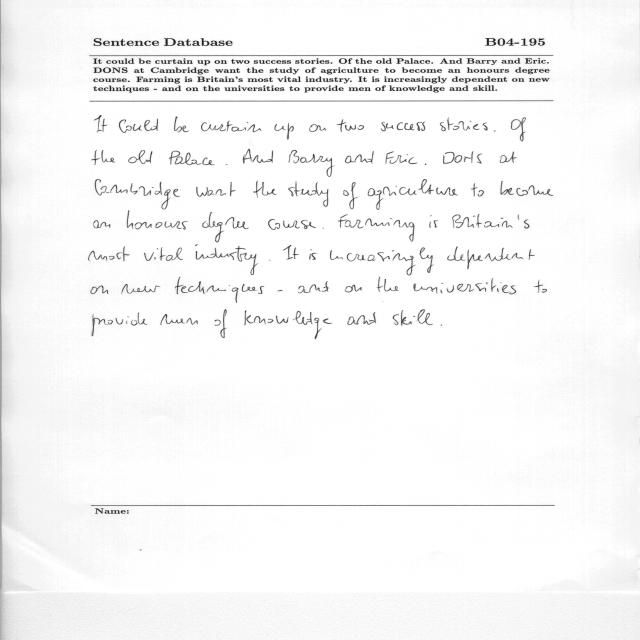 Sentence Database B04-195
It could be curtain up on two success stories. Of the old Palace. And Barry and Eric.
DONS at Cambridge want the study of agriculture to become an honours degree
course. Farming is Britain's most vital industry. It is increasingly dependent on new
techniques - and on the universities to provide men of knowledge and skill.
It Could be curtain up on two success stories. Of
the old Palace. And Barry and Eric. DONS at
Cambridge want the study of agriculture to become
an honours degree course. Farming is Britain's
most vital industry. It is increasingly dependent
on new techniques - and on the universities to
provide men of knowledge and skill.
Name: